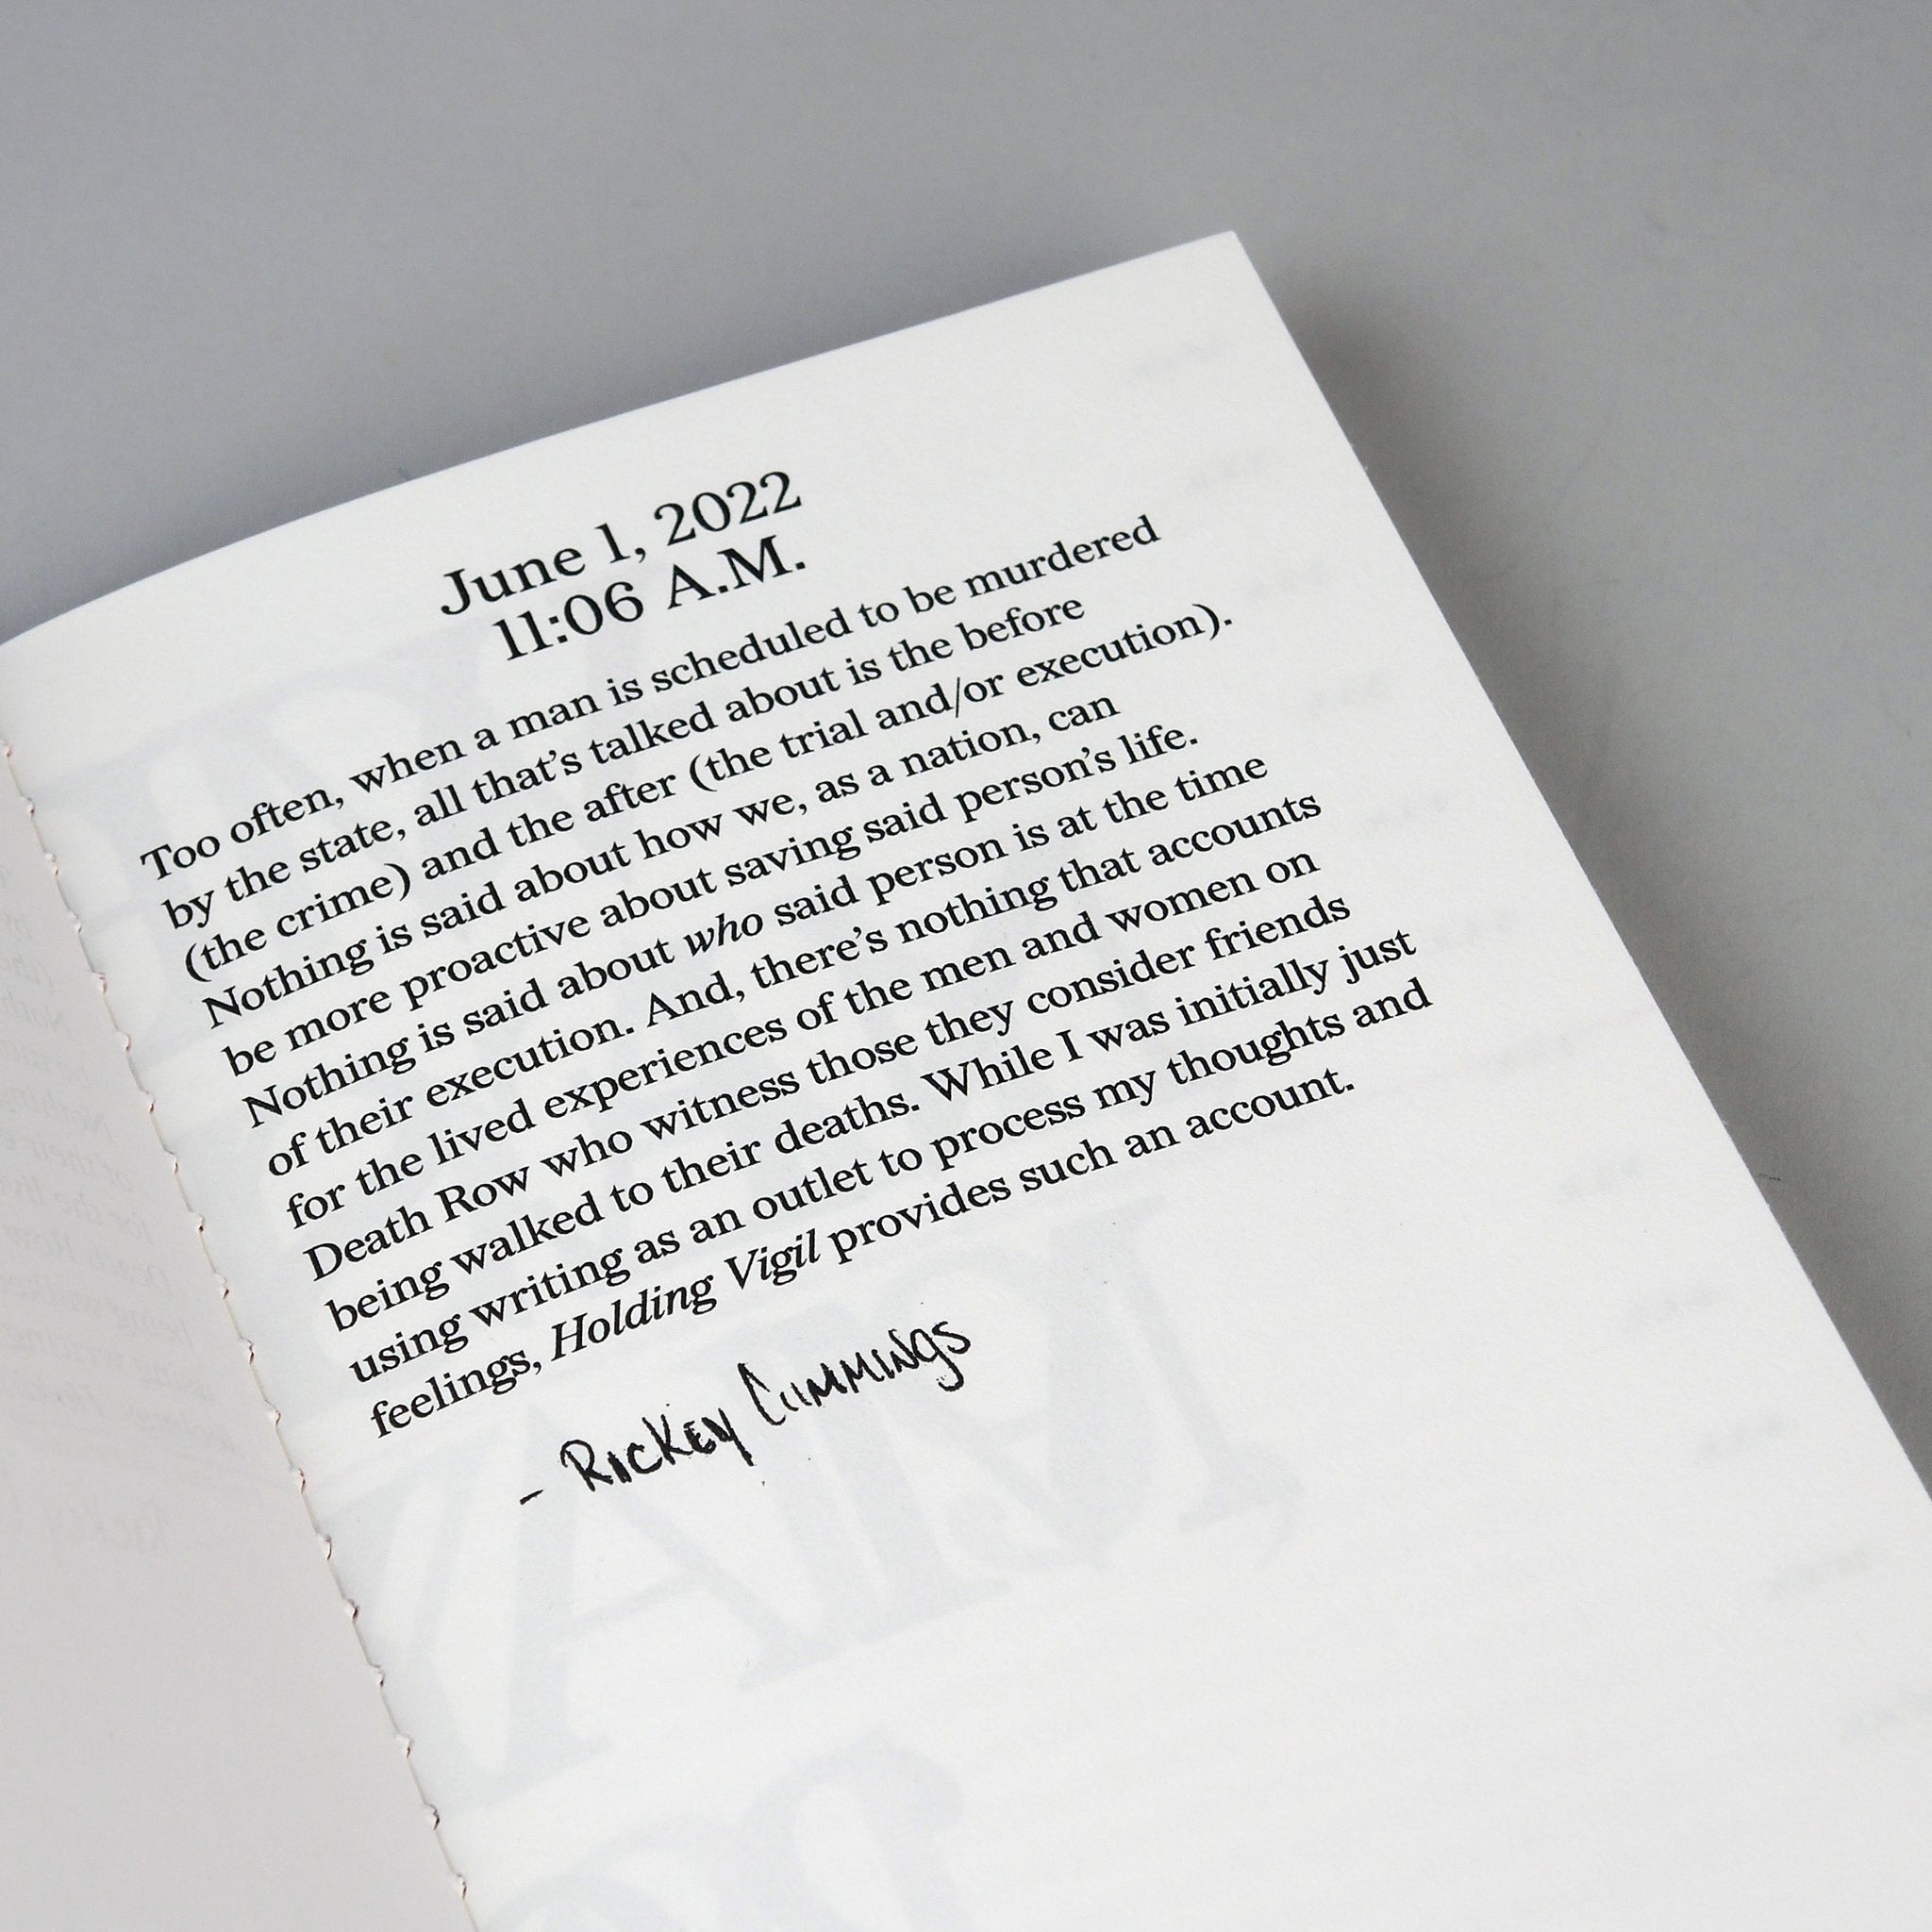 June 1, 2022
11:06 A.M.
Too often, when a man is scheduled to be murdered
by the state, all that’s talked about is the before
(the crime) and the after (the trial and/or execution).
Nothing is said about how we, as a nation, can
be more proactive about saving said person’s life.
Nothing is said about who said person is at the time
of their execution. And, there’s nothing that accounts
for the lived experiences of the men and women on
Death Row who witness those they consider friends
being walked to their deaths. While I was initially just
using writing as an outlet to process my thoughts and
feelings, Holding Vigil provides such an account.
- Rickey Cummings